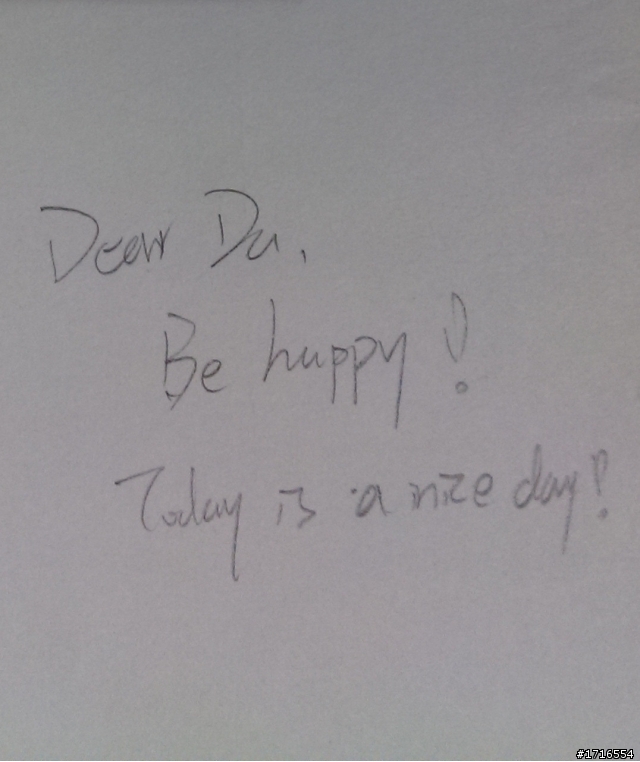 Dear Da,
Be happy!
Today is a nice day!
#1716554